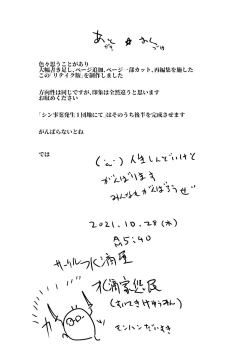 あと☆がき
色々思うことがあり
大幅書き足し、ページ追加、ページ一部カット、再編集を施した
この「リテイク版」を制作しました
方向性は同じですが、印象は全然違うと思います
お収めください
「シン事案発生1団地にて」はそのうち後半を完成させます
がんばらないとね
では
人生しんどいけど
がんばります
みんなもがんばろうぜ
2021.10.28(木)
AM5:40
サークル水滴屋
水滴家処民
モンハンだいすき